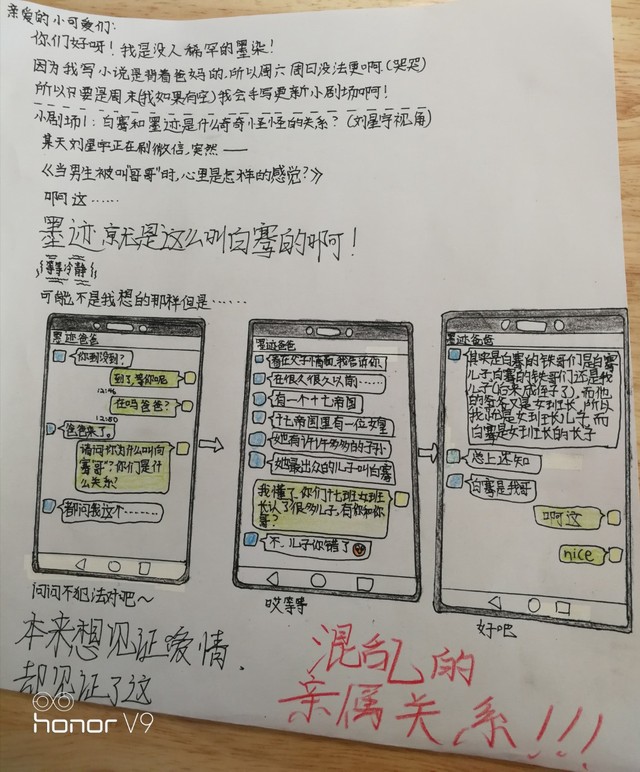 亲爱的小可爱们:
你们好呀！我是没人稀罕的墨染！
因为我写小说是背着爸妈的,所以周六周日没法更啊(哭哭)
所以只要是周末(我如果有空)我会手写更新小剧场啊！
小剧场1:白骞和墨迹是什么奇奇怪怪的关系？(刘星宇视角)
某天刘星宇正在刷微信,突然——
《当男生被叫"哥哥"时,心里是怎样的感觉?》
啊这……
墨迹,就是这么叫白骞的啊！
等等冷静
可能不是我想的那样但是……
墨迹爸爸
你到没到?
到了,等你呢
12:46
在吗爸爸?
12:50
爸爸来了。
请问你为什么叫白骞"哥"?你们是什么关系?
都问我这个……
问问不犯法对吧～
墨迹爸爸
看在父子情面,我告诉你
在很久很久以前……
有一个十七帝国
十七帝国里有一位女皇
她有许许多多的子孙
她最出众的儿子叫白骞
我懂了,你们十七班女班
长认了很多儿子,有你和你
哥?
不,儿子你错了
哎等等
墨迹爸爸
其实是白骞的铁哥们是白骞
儿子,白骞的铁哥们还是我
儿子(后来成侄子了),而他
的爸爸又是女班长,所以
我也是女班长儿子,而
白骞是女班长的长子
总上还知
白骞是我哥
啊这
nice
好吧
本来想见证爱情,
却见证了这
混乱的
亲属关系!!!
honor V9